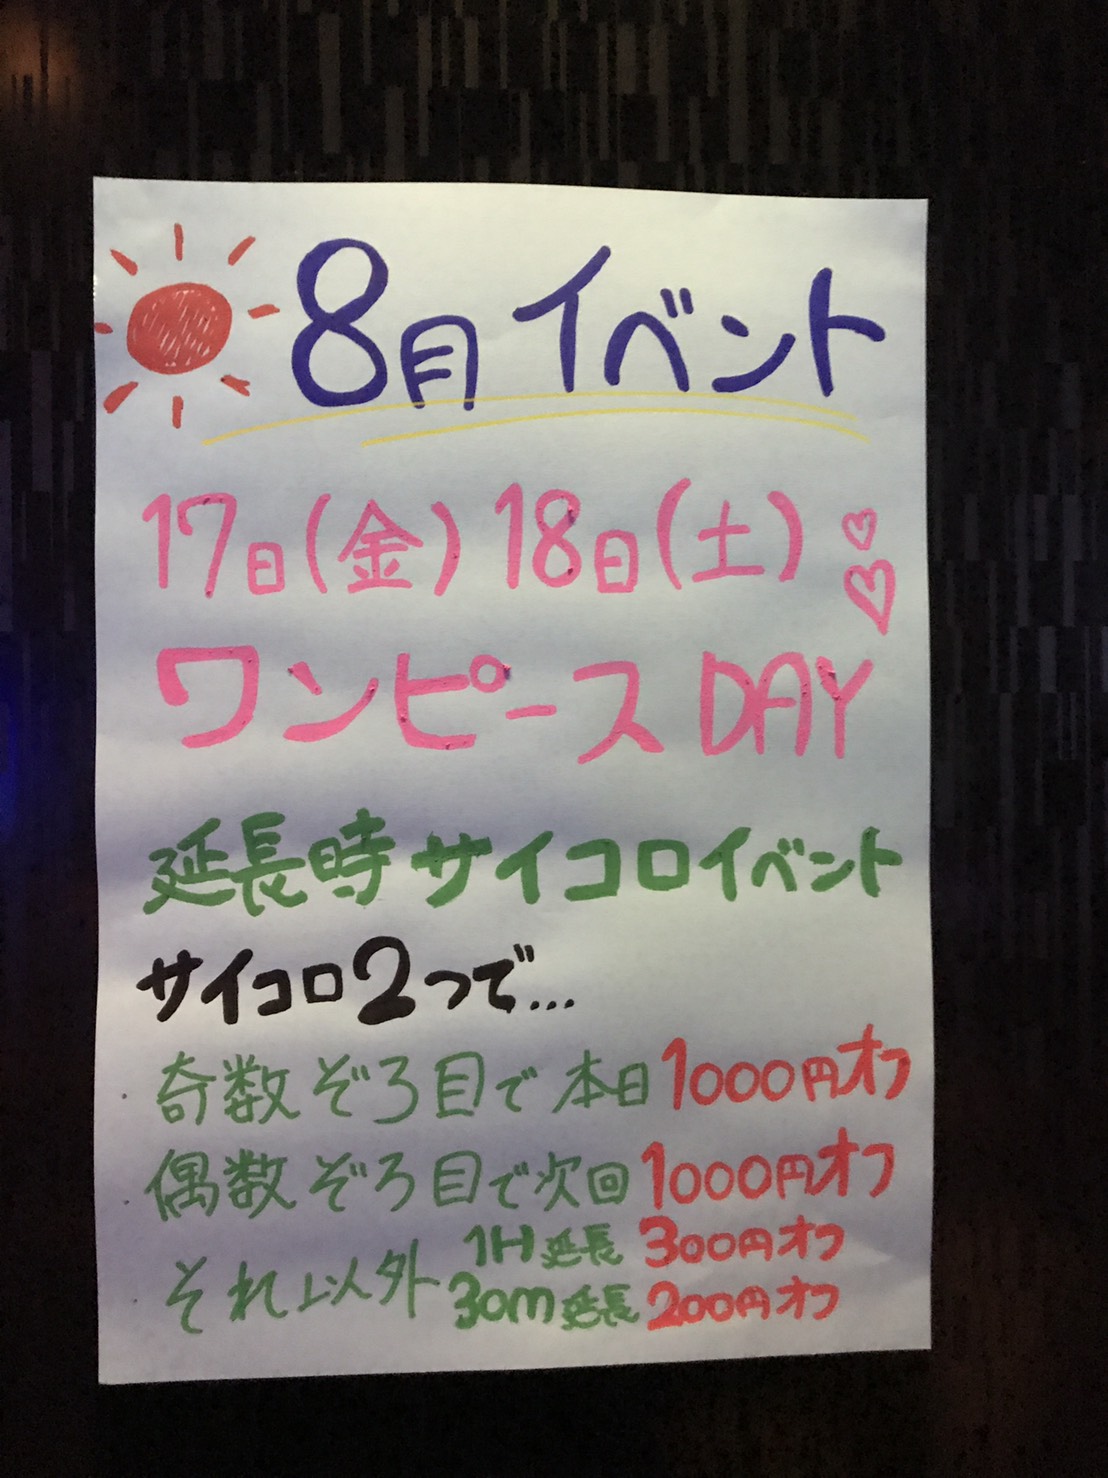 8月イベント
17日(金)18日(土)
ワンピースDAY
延長時サイコロイベント
サイコロ2つで…
・奇数ぞろ目で本日1000円オフ
・偶数ぞろ目で次回1000円オフ
・それ以外 1H延長 300円オフ
30m延長 200円オフ